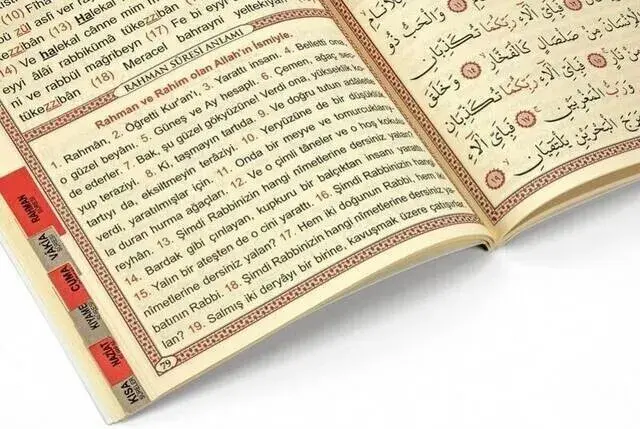 (10) Fîha
asfi ver
halekal cânne mim
eyyi âlâi rabbikümâ tükezzibân
ni ve rabbül mağribeyn (17) Fe bi eyyi
tükezzibân (18) Meracel bahrayni yeltekıyan
RAHMAN SÛRESİ ANLAMI
Rahman ve Rahim olan Allah'ın İsmiyle.
1. Rahmân, 2. Öğretti Kur'an'ı, 3. Yarattı insanı. 4. Belletti ona,
o güzel beyânı. 5. Güneş ve Ay hesaplı. 6. Çemen, ağaç sec-
de ederler. 7. Bak, şu güzel gökyüzüne! Verdi ona, yükseklik ko-
yup terâziyi. 8. Ki, taşmayın tartıda. 9. Ve doğru tutun adâletle
tartıyı da, eksiltmeyin terâziyi. 10. Yeryüzüne de bir düşüklük
verdi, yaratılmışlar için. 11. Onda bir meyve ve tomurcuklarıy-
la duran hurma ağaçları. 12. Ve o çimli tâneler ve o hoş kokulu
reyhân. 13. Şimdi Rabbinizin hangi nîmetlerine dersiniz yalan?
14. Bardak gibi çınlayan, kupkuru bir balçıktan insanı yarattı.
15. Yalın bir ateşten de o cini yarattı. 16. Şimdi Rabbinizin hangi
nîmetlerine dersiniz yalan? 17. Hem iki doğunun Rabbi, hem iki
batının Rabbi. 18. Şimdi Rabbinizin hangi nîmetlerine dersiniz ya-
lan? 19. Salmış iki deryâyı bir birine, kavuşmak üzere çatışırlar.
79
RAHMAN
VAKIA
CUMA
KIYAME
NAZİAT
KISA
وَالْحَبُّ ذُو
فَبِاَيِّ اٰلَٓاءِ رَبِّكُمَا تُكَذِّبَانِ
مِنْ صَلْصَالٍ كَالْفَخَّارِ وَخَلَقَ
فَبِاَيِّ اٰلَٓاءِ رَبِّكُمَا تُكَذِّبَانِ
وَرَبُّ الْمَغْرِبَيْنِ فَبِاَيِّ اٰلَٓاءِ
الْبَحْرَيْنِ يَلْتَقِيَانِ